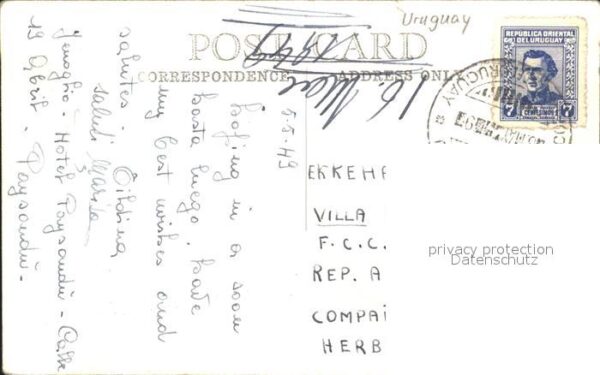 Uruguay
POST CARD
CORRESPONDENCE
ADDRESS ONLY
1949
REPÚBLICA ORIENTAL
DEL URUGUAY
7 CENTESIMOS 7
URUGUAY
5-5-49
Hoping in a soon
hasta luego. Have
my best wishes and
salutes -
Titina
saluti Maria
Hotel Paysandú - Calle
19 Abril - Paysandú -
EKKEHA
VILLA
F.C.C.
REP. A
COMPAÑ
HERB
privacy protection
Datenschutz